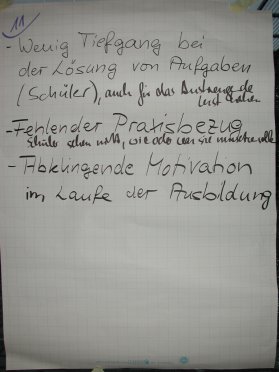 11
- Wenig Tiefgang bei
der Lösung von Aufgaben
(Schüler), auch für das
- Fehlender Praxisbezug
Schüler sehen nicht, wie oder
- Abklingende Motivation
im Laufe der Ausbildung